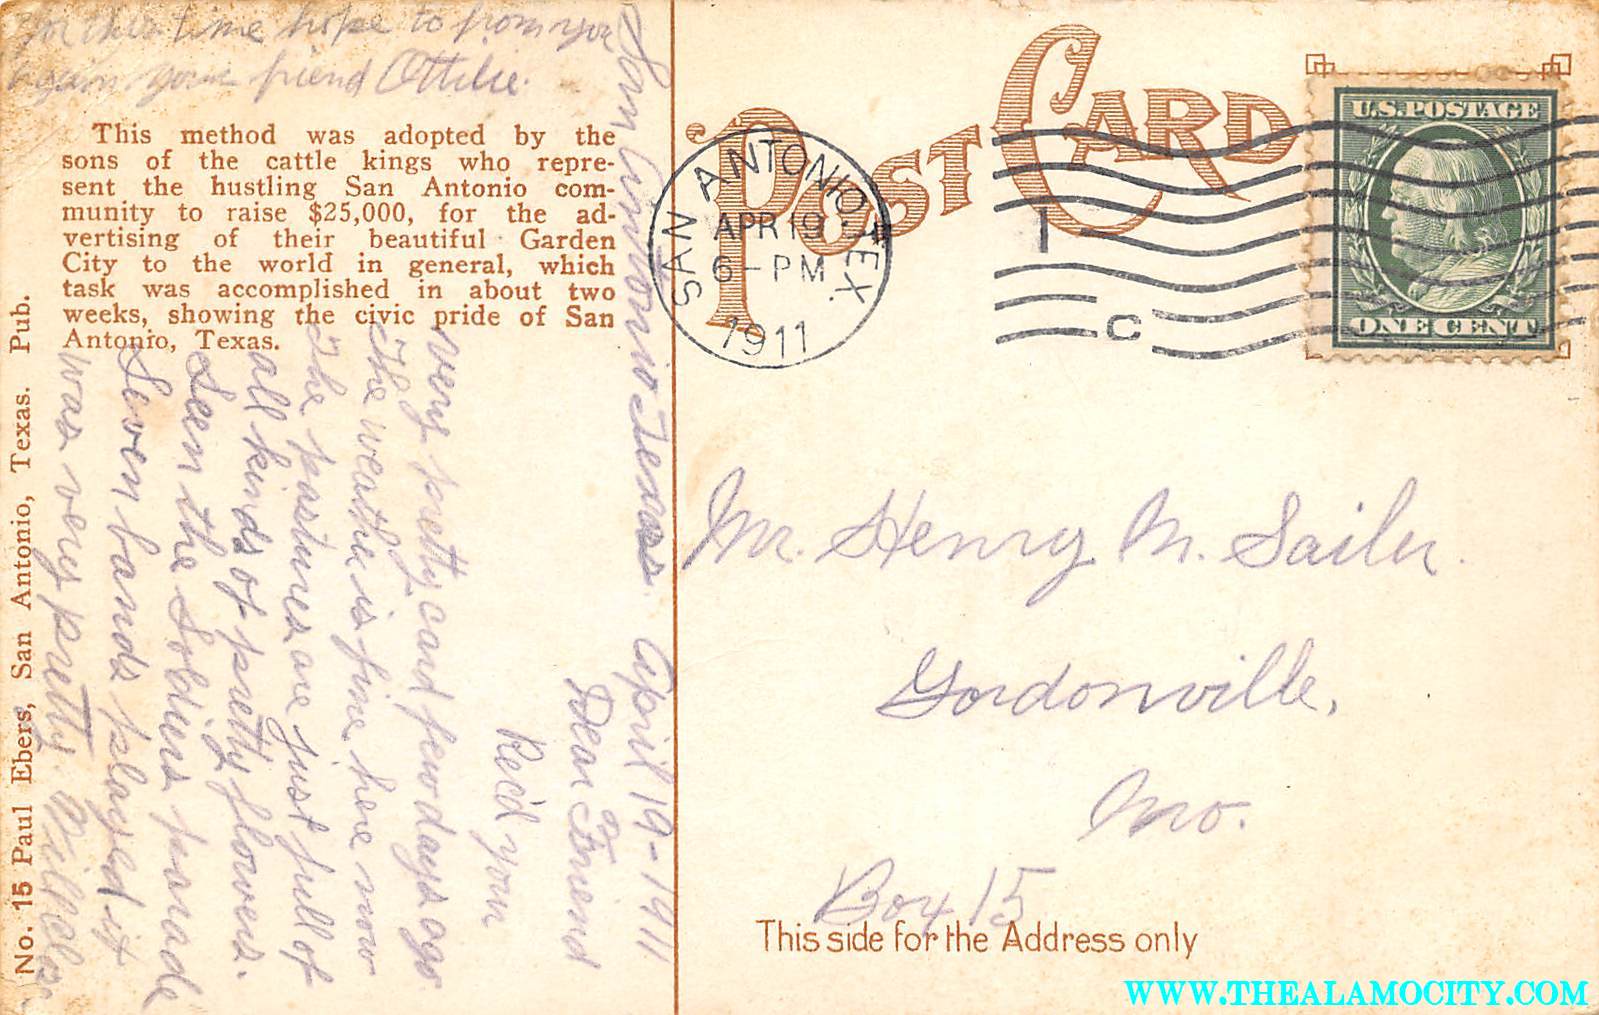 San Antonio Texas. April 19-1911
Dear Friend
Rec'd your
very pretty card few days ago
The weather is fine here now
The pastures are just full of
all kinds of pretty flowers.
Seen the Soldiers parade
Seven bands played it
was very pretty. Will close
for this time hope to from you
again your friend Ottilie.
This method was adopted by the
sons of the cattle kings who repre-
sent the hustling San Antonio com-
munity to raise $25,000, for the ad-
vertising of their beautiful Garden
City to the world in general, which
task was accomplished in about two
weeks, showing the civic pride of San
Antonio, Texas.
No. 15 Paul Ebers, San Antonio, Texas. Pub.
POST CARD
SAN ANTONIO, TEX.
APR 19
6-PM
1911
1
C
U.S. POSTAGE
ONE CENT
Mr. Henry M. Sailer.
Gordonville,
Mo.
Box 15
This side for the Address only
WWW.THEALAMOCITY.COM